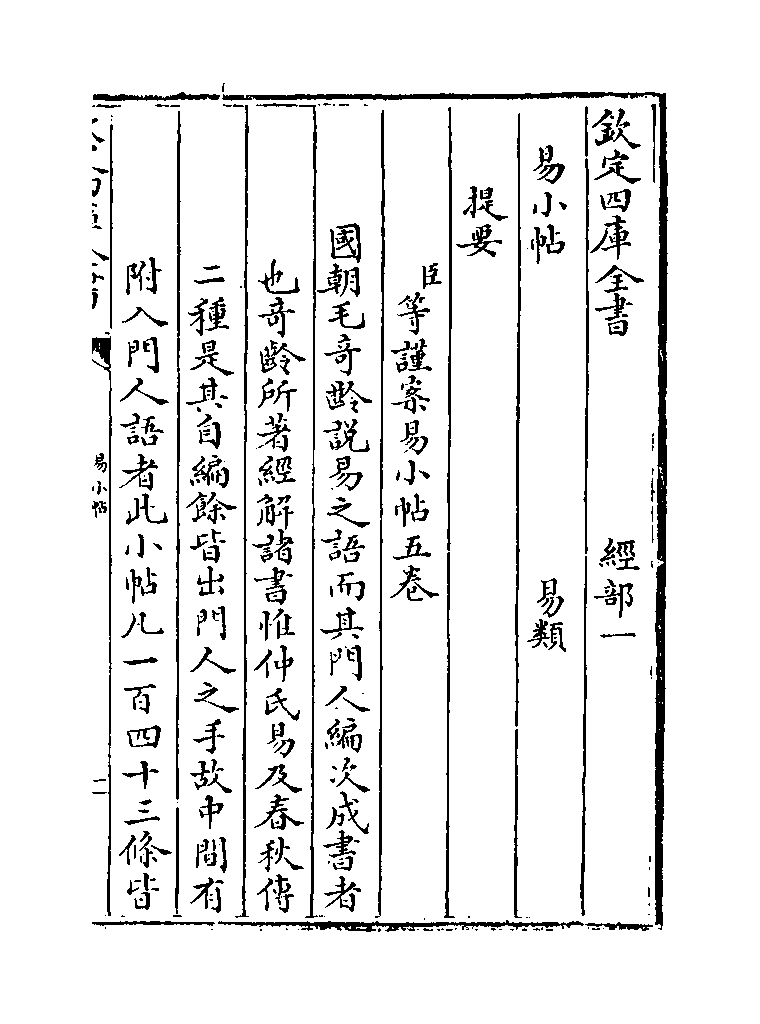 欽定四庫全書　經部一
易小帖　易類
提要
臣等謹案易小帖五卷
國朝毛奇齡説易之語而其門人編次成書者
也奇齡所著經解諸書惟仲氏易及春秋傳
二種是其自編餘皆出門人之手故中間有
附入門人語者此小帖凡一百四十三條皆
易小帖